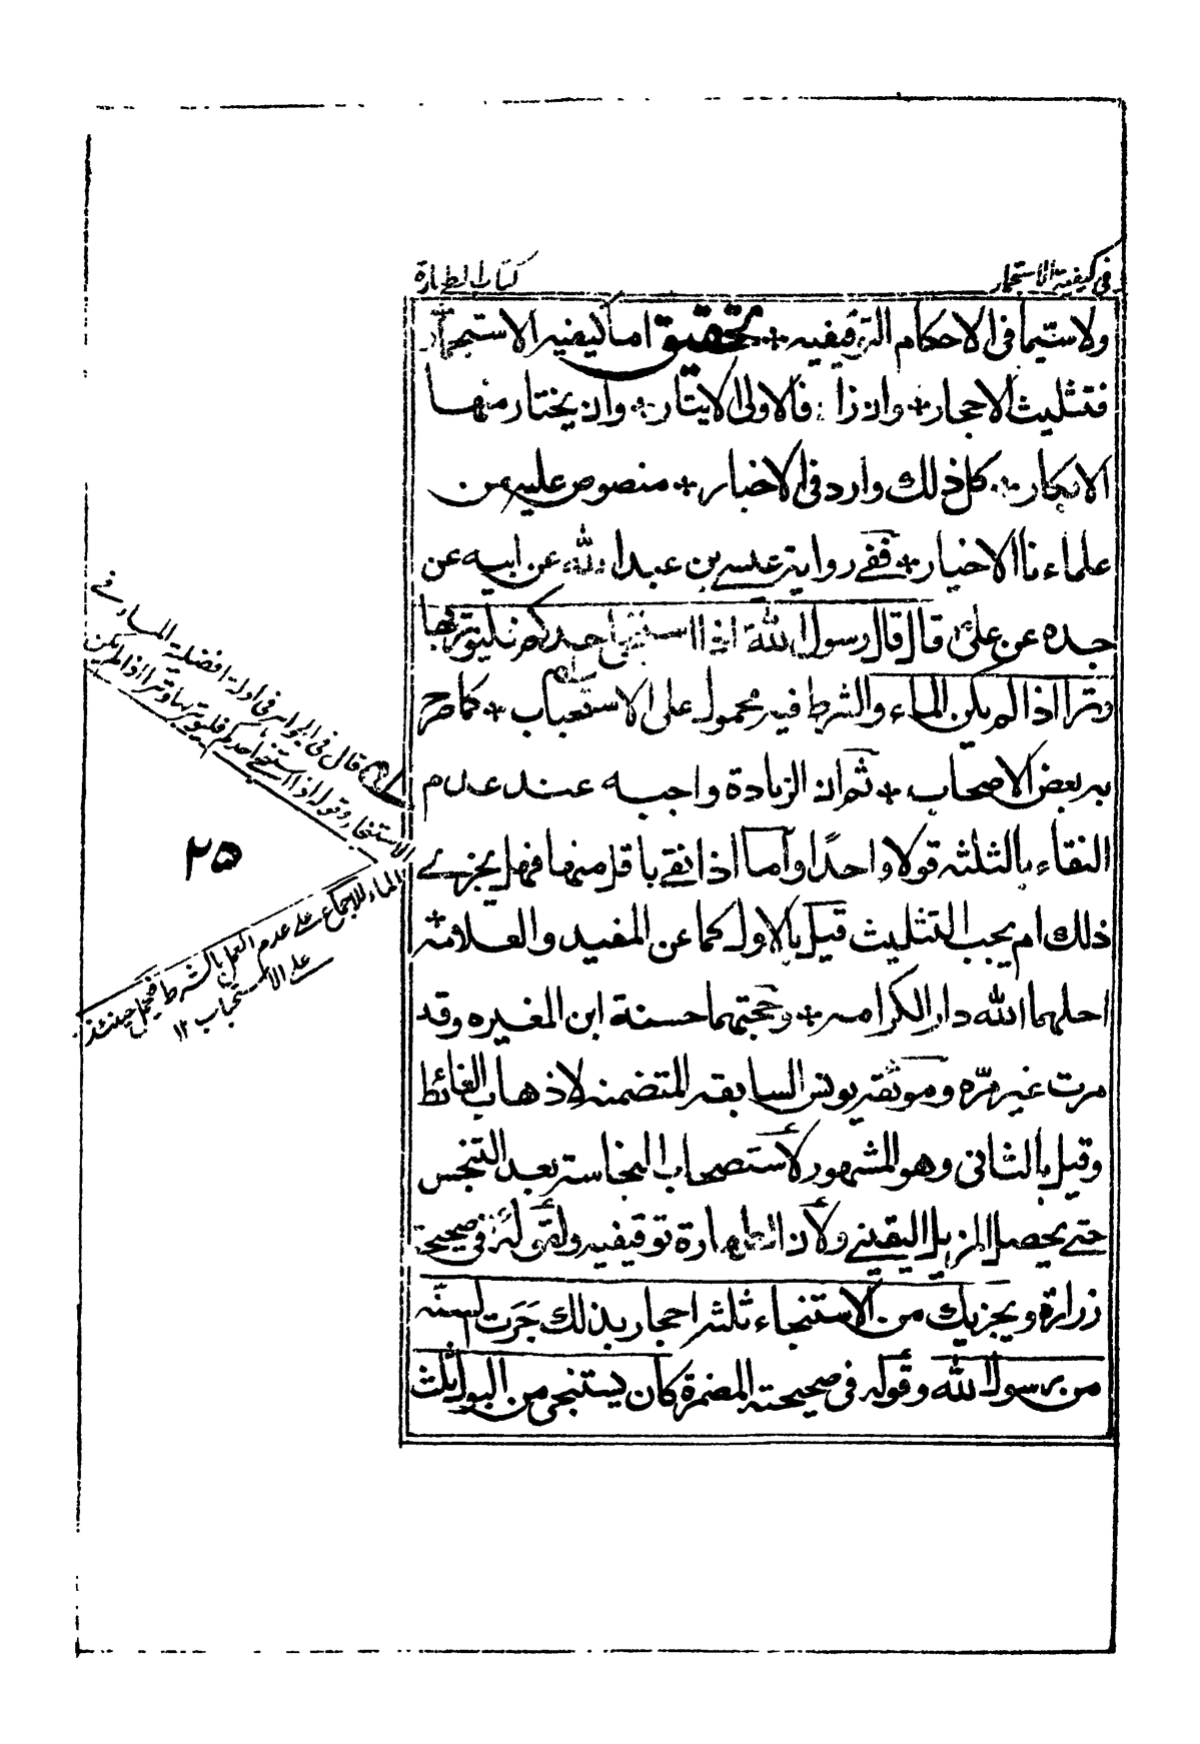 في كيفية الاستجمار
كتاب الطهارة
ولا سيّما في الاحكام التوقيفيه * تحقيق اما كيفيه الاستجمار
فتثليث الاحجار * وان زاد فالاولى الايتار * وان يختار منها
الابكار * كل ذلك وارد في الاخبار * منصوص عليه من
علماءنا الاخيار * ففي رواية عيسى بن عبد الله عن ابيه عن
جده عن علي قال قال رسول الله اذا استنجى احدكم فليوتر بها
وترا اذا لم يكن الماء والشرط فيه محمول على الاستحباب * كما صرح
به بعض الاصحاب * ثم ان الزيادة واجبه عند عدم
النقاء بالثلثه قولا واحدًا وأما اذا نقي باقل منها فهل يجزي
ذلك ام يجب التثليث قيل بالاول كما عن المفيد والعلامة *
احلهما الله دار الكرامه * وحجتهما حسنة ابن المغيره وقد
مرت غير مرّه وموثقه يونس السابقه المتضمنه لاذهاب الغائط
وقيل بالثاني وهو المشهور لأستصحاب النجاسة بعد التنجس
حتى يحصل المزيل اليقيني ولأن الطهارة توقيفيه ولقوله في صحيحة
زرارة ويجزيك من الاستنجاء ثلثه احجار بذلك جَرَت السنّه
من رسول الله وقوله في صحيحته المضمرة كان يستنجي من البول ثلث
قال في الجواهر في ادلة افضلية الماء في
الاستنجاء وقوله اذا استنجى احدكم فليوتر بها وترا اذا لم يكن
الماء للاجماع على عدم العمل بالشرط فيحمل حينئذ
على الاستحباب ١٢
٢٥